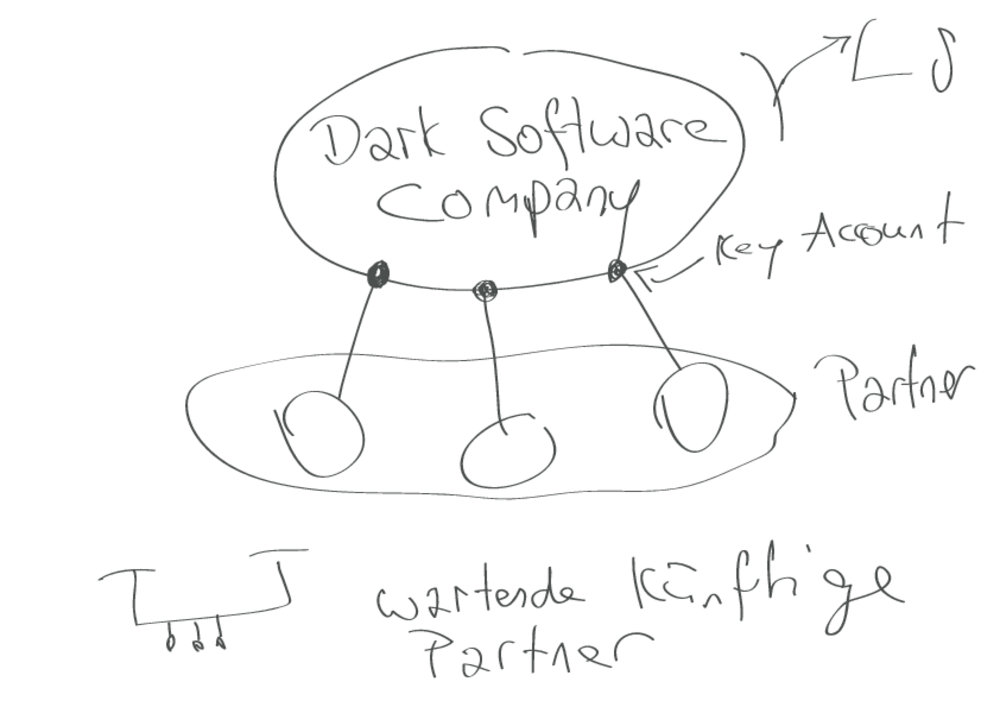 Dark Software
Company
Key Account
Partner
wartende Künftige
Partner